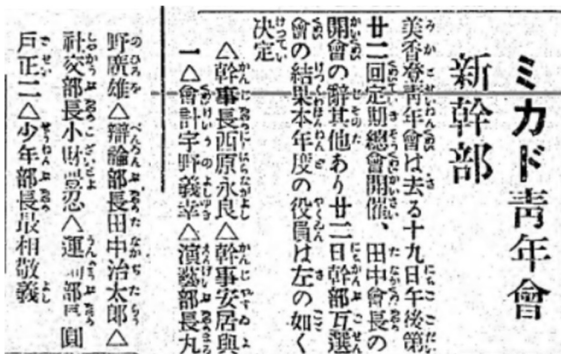 ミカド青年會
新幹部
美香登青年會は去る十九日午後第
廿二回定期總會開催、田中會長の
開會の辭其他あり廿二日幹部互選
會の結果本年度の役員は左の如く
決定
△幹事長西原永良△幹事安居與
一△會計宇野義幸△演藝部長丸
野廣雄△辯論部長田中治太郎△
社交部長小財豊忍△運 部長圓
戸正二△少年部長最相敬義